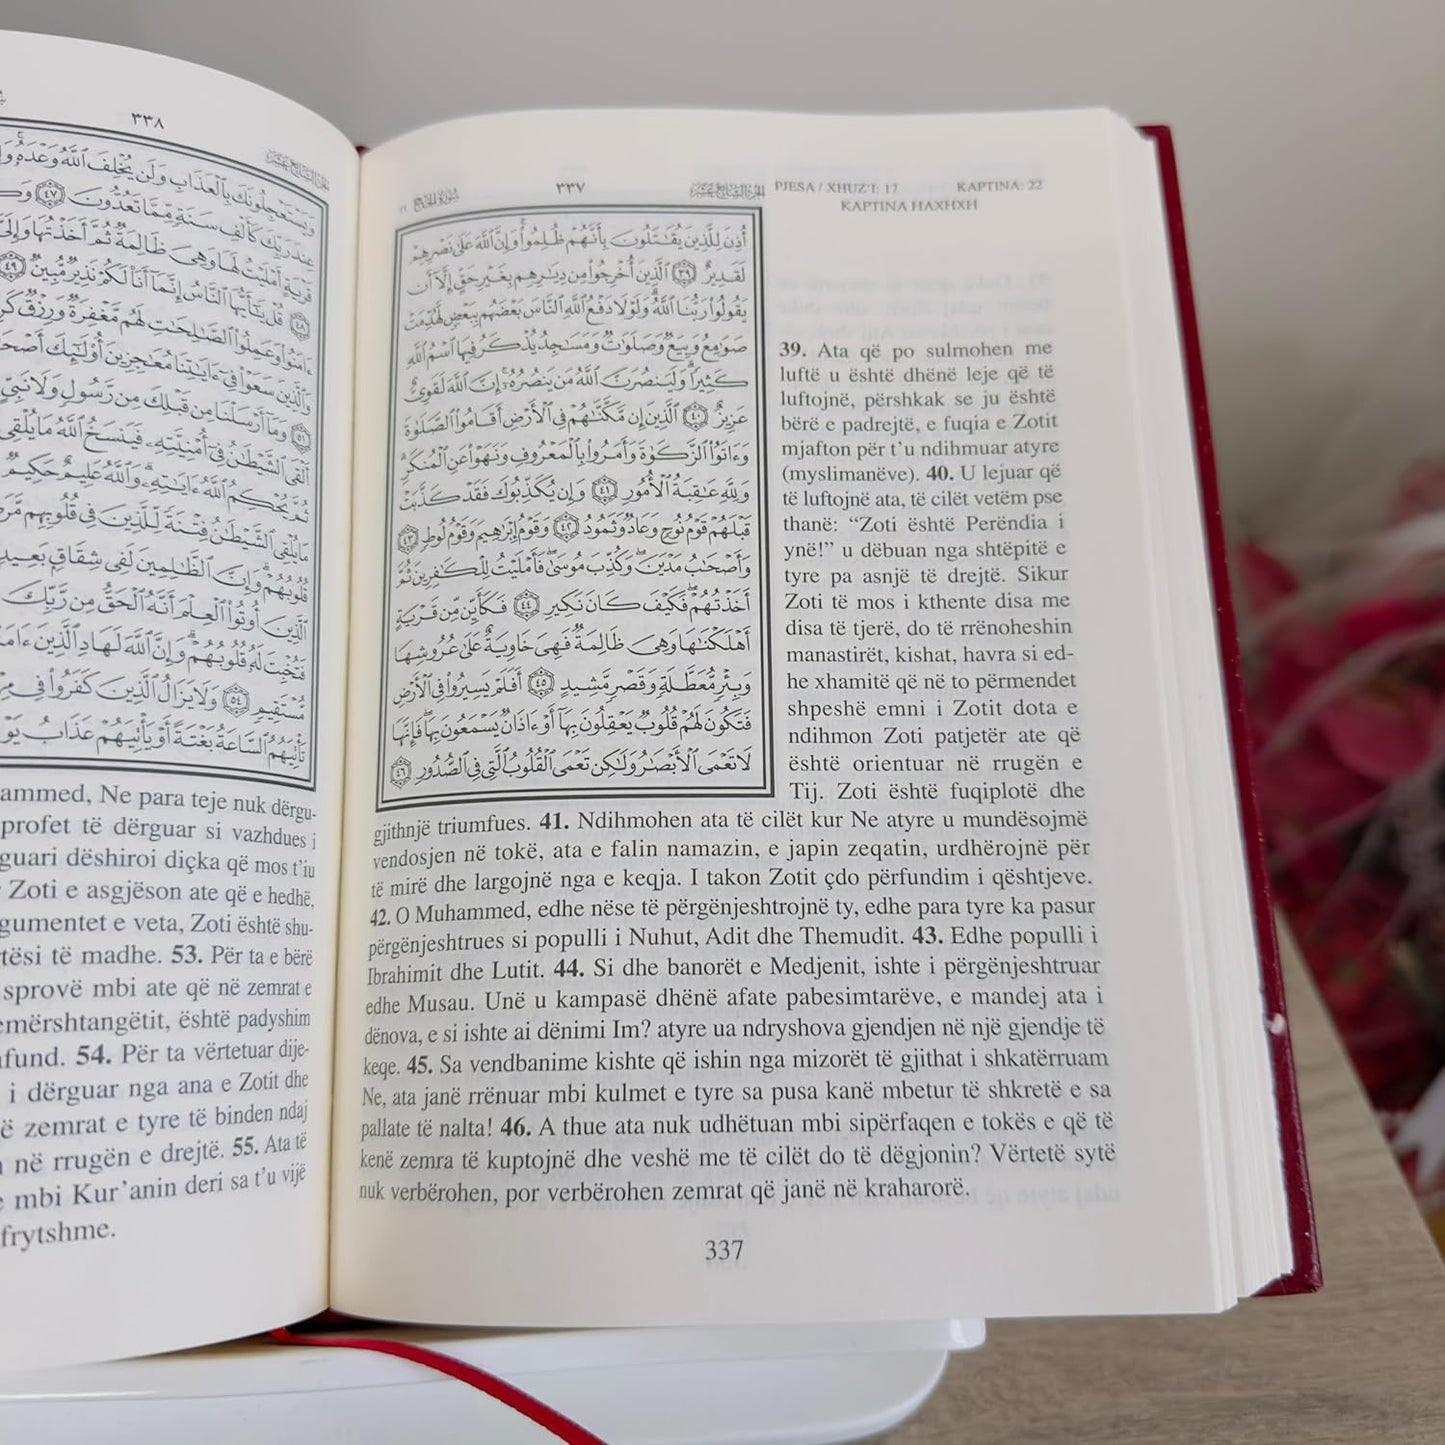 ٣٣٧
PJESA / XHUZ'I: 17 KAPTINA: 22
KAPTINA HAXHXH
أُذِنَ لِلَّذِينَ يُقَٰتَلُونَ بِأَنَّهُمْ ظُلِمُوا۟ وَإِنَّ ٱللَّهَ عَلَىٰ نَصْرِهِمْ
لَقَدِيرٌ ٣٩ ٱلَّذِينَ أُخْرِجُوا۟ مِن دِيَٰرِهِم بِغَيْرِ حَقٍّ إِلَّآ أَن
يَقُولُوا۟ رَبُّنَا ٱللَّهُ وَلَوْلَا دَفْعُ ٱللَّهِ ٱلنَّاسَ بَعْضَهُم بِبَعْضٍ لَّهُدِّمَتْ
صَوَٰمِعُ وَبِيَعٌ وَصَلَوَٰتٌ وَمَسَٰجِدُ يُذْكَرُ فِيهَا ٱسْمُ ٱللَّهِ
كَثِيرًا وَلَيَنصُرَنَّ ٱللَّهُ مَن يَنصُرُهُۥٓ إِنَّ ٱللَّهَ لَقَوِىٌّ
عَزِيزٌ ٤٠ ٱلَّذِينَ إِن مَّكَّنَّٰهُمْ فِى ٱلْأَرْضِ أَقَامُوا۟ ٱلصَّلَوٰةَ
وَءَاتَوُا۟ ٱلزَّكَوٰةَ وَأَمَرُوا۟ بِٱلْمَعْرُوفِ وَنَهَوْا۟ عَنِ ٱلْمُنكَرِ
وَلِلَّهِ عَٰقِبَةُ ٱلْأُمُورِ ٤١ وَإِن يُكَذِّبُوكَ فَقَدْ كَذَّبَتْ
قَبْلَهُمْ قَوْمُ نُوحٍ وَعَادٌ وَثَمُودُ ٤٢ وَقَوْمُ إِبْرَٰهِيمَ وَقَوْمُ لُوطٍ ٤٣
وَأَصْحَٰبُ مَدْيَنَ وَكُذِّبَ مُوسَىٰ فَأَمْلَيْتُ لِلْكَٰفِرِينَ ثُمَّ
أَخَذْتُهُمْ فَكَيْفَ كَانَ نَكِيرِ ٤٤ فَكَأَيِّن مِّن قَرْيَةٍ
أَهْلَكْنَٰهَا وَهِىَ ظَالِمَةٌ فَهِىَ خَاوِيَةٌ عَلَىٰ عُرُوشِهَا
وَبِئْرٍ مُّعَطَّلَةٍ وَقَصْرٍ مَّشِيدٍ ٤٥ أَفَلَمْ يَسِيرُوا۟ فِى ٱلْأَرْضِ
فَتَكُونَ لَهُمْ قُلُوبٌ يَعْقِلُونَ بِهَآ أَوْ ءَاذَانٌ يَسْمَعُونَ بِهَا فَإِنَّهَا
لَا تَعْمَى ٱلْأَبْصَٰرُ وَلَٰكِن تَعْمَى ٱلْقُلُوبُ ٱلَّتِى فِى ٱلصُّدُورِ ٤٦
39. Ata që po sulmohen me
luftë u është dhënë leje që të
luftojnë, përshkak se ju është
bërë e padrejtë, e fuqia e Zotit
mjafton për t'u ndihmuar atyre
(myslimanëve). 40. U lejuar që
të luftojnë ata, të cilët vetëm pse
thanë: “Zoti është Perëndia i
ynë!” u dëbuan nga shtëpitë e
tyre pa asnjë të drejtë. Sikur
Zoti të mos i kthente disa me
disa të tjerë, do të rrënoheshin
manastirët, kishat, havra si ed-
he xhamitë që në to përmendet
shpeshë emni i Zotit dota e
ndihmon Zoti patjetër ate që
është orientuar në rrugën e
Tij. Zoti është fuqiplotë dhe
gjithnjë triumfues. 41. Ndihmohen ata të cilët kur Ne atyre u mundësojmë
vendosjen në tokë, ata e falin namazin, e japin zeqatin, urdhërojnë për
të mirë dhe largojnë nga e keqja. I takon Zotit çdo përfundim i qështjeve.
42. O Muhammed, edhe nëse të përgënjeshtrojnë ty, edhe para tyre ka pasur
përgënjeshtrues si populli i Nuhut, Adit dhe Themudit. 43. Edhe populli i
Ibrahimit dhe Lutit. 44. Si dhe banorët e Medjenit, ishte i përgënjeshtruar
edhe Musau. Unë u kampasë dhënë afate pabesimtarëve, e mandej ata i
dënova, e si ishte ai dënimi Im? atyre ua ndryshova gjendjen në një gjendje të
keqe. 45. Sa vendbanime kishte që ishin nga mizorët të gjithat i shkatërruam
Ne, ata janë rrënuar mbi kulmet e tyre sa pusa kanë mbetur të shkretë e sa
pallate të nalta! 46. A thue ata nuk udhëtuan mbi sipërfaqen e tokës e që të
kenë zemra të kuptojnë dhe veshë me të cilët do të dëgjonin? Vërtetë sytë
nuk verbërohen, por verbërohen zemrat që janë në kraharorë.
337
٣٣٨
وَيَسْتَعْجِلُونَكَ بِٱلْعَذَابِ وَلَن يُخْلِفَ ٱللَّهُ وَعْدَهُۥ
عِندَ رَبِّكَ كَأَلْفِ سَنَةٍ مِّمَّا تَعُدُّونَ ٤٧
قَرْيَةٍ أَمْلَيْتُ لَهَا وَهِىَ ظَالِمَةٌ ثُمَّ أَخَذْتُهَا وَإِلَىَّ
٤٨ قُلْ يَٰٓأَيُّهَا ٱلنَّاسُ إِنَّمَآ أَنَا۠ لَكُمْ نَذِيرٌ مُّبِينٌ ٤٩
ءَامَنُوا۟ وَعَمِلُوا۟ ٱلصَّٰلِحَٰتِ لَهُم مَّغْفِرَةٌ وَرِزْقٌ
وَٱلَّذِينَ سَعَوْا۟ فِىٓ ءَايَٰتِنَا مُعَٰجِزِينَ أُو۟لَٰٓئِكَ
٥١ وَمَآ أَرْسَلْنَا مِن قَبْلِكَ مِن رَّسُولٍ وَلَا نَبِىٍّ
أَلْقَى ٱلشَّيْطَٰنُ فِىٓ أُمْنِيَّتِهِۦ فَيَنسَخُ ٱللَّهُ مَا يُلْقِى
ثُمَّ يُحْكِمُ ٱللَّهُ ءَايَٰتِهِۦ وَٱللَّهُ عَلِيمٌ حَكِيمٌ
مَا يُلْقِى ٱلشَّيْطَٰنُ فِتْنَةً لِّلَّذِينَ فِى قُلُوبِهِم
قُلُوبُهُمْ وَإِنَّ ٱلظَّٰلِمِينَ لَفِى شِقَاقٍۭ بَعِيدٍ
ٱلَّذِينَ أُوتُوا۟ ٱلْعِلْمَ أَنَّهُ ٱلْحَقُّ مِن رَّبِّكَ
فَتُخْبِتَ لَهُۥ قُلُوبُهُمْ وَإِنَّ ٱللَّهَ لَهَادِ ٱلَّذِينَ
مُّسْتَقِيمٍ ٥٤ وَلَا يَزَالُ ٱلَّذِينَ كَفَرُوا۟ فِى
تَأْتِيَهُمُ ٱلسَّاعَةُ بَغْتَةً أَوْ يَأْتِيَهُمْ عَذَابُ
ammed, Ne para teje nuk dërgu-
profet të dërguar si vazhdues i
guari dëshiroi diçka që mos t'iu
Zoti e asgjëson ate që e hedhë,
gumentet e veta, Zoti është shu-
tësi të madhe. 53. Për ta e bërë
sprovë mbi ate që në zemrat e
emërshtangëtit, është padyshim
fund. 54. Për ta vërtetuar dije-
i dërguar nga ana e Zotit dhe
ë zemrat e tyre të binden ndaj
në rrugën e drejtë. 55. Ata të
mbi Kur'anin deri sa t'u vijë
frytshme.